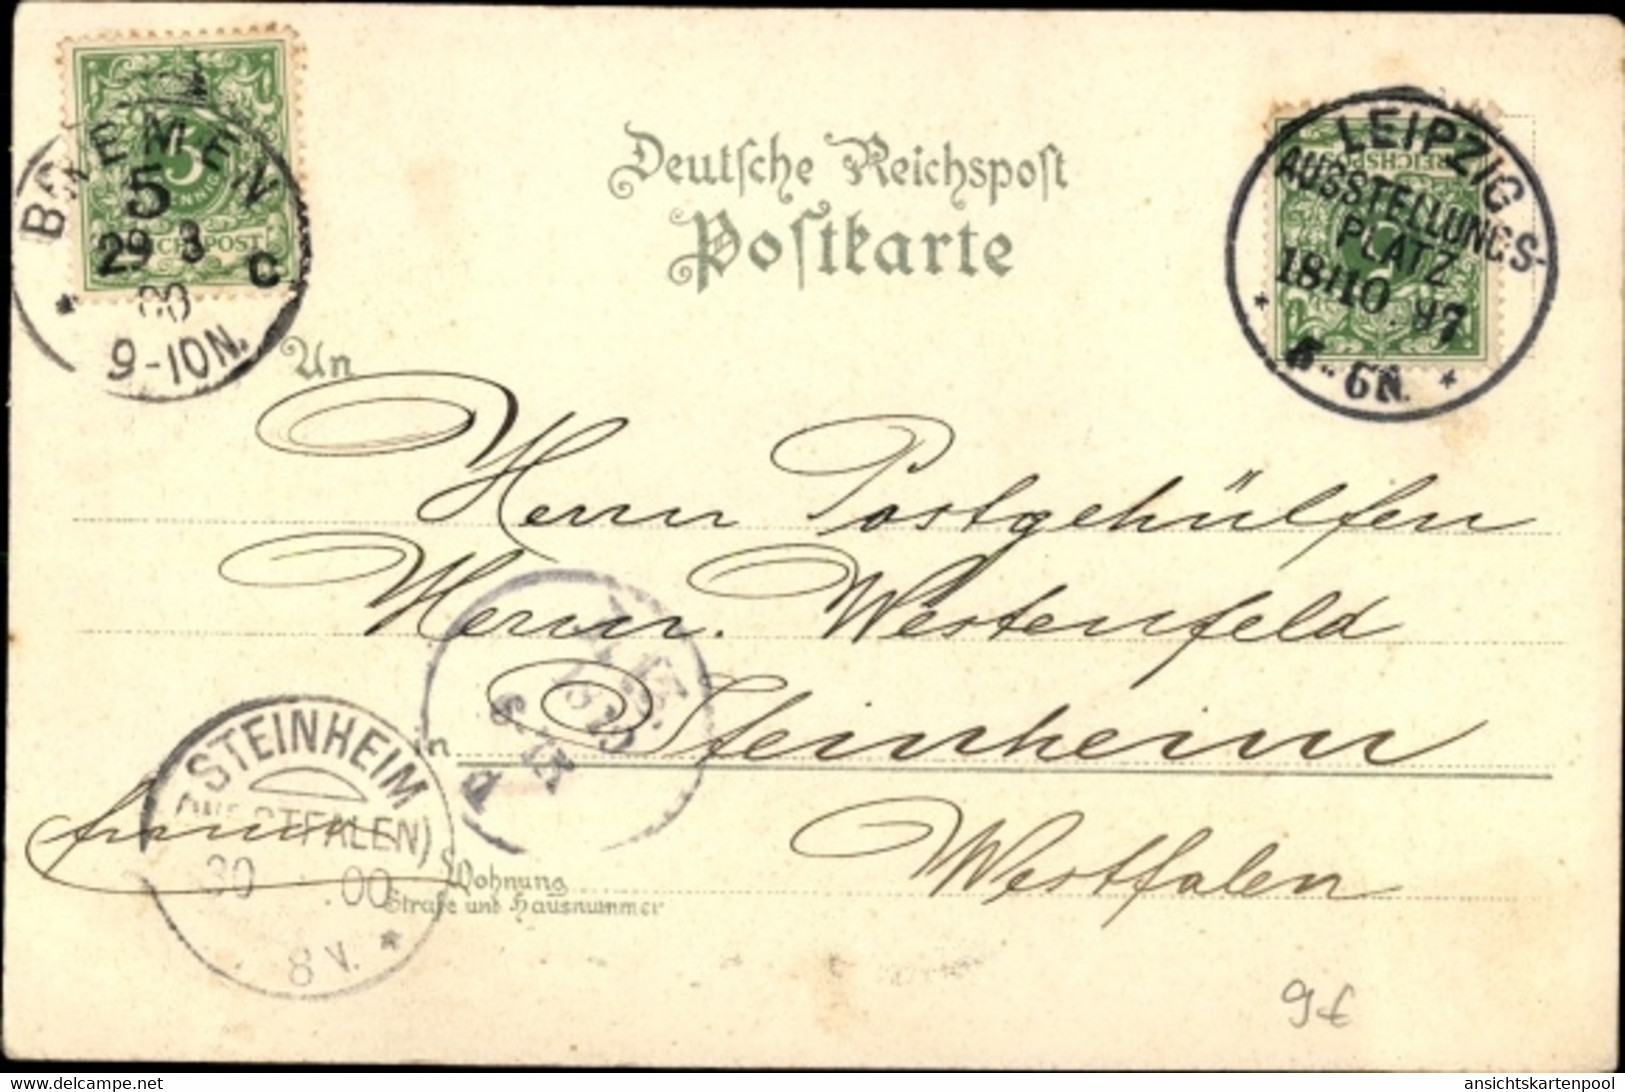 BREMEN
5
29 3
C
00
9-10N.
5
REICHSPOST
Deutsche Reichspost
Postkarte
LEIPZIG
AUSSTELLUNGS-
PLATZ
18/10. 97
5-6N.
REICHSPOST
An
Herrn Postgehülfen
Herm. Westenfeld
in Steinheim
Westfalen
franco
STEINHEIM
(WESTFALEN)
30 00
8 V.
Wohnung
Straße und Hausnummer
9€
ansichtskartenpool